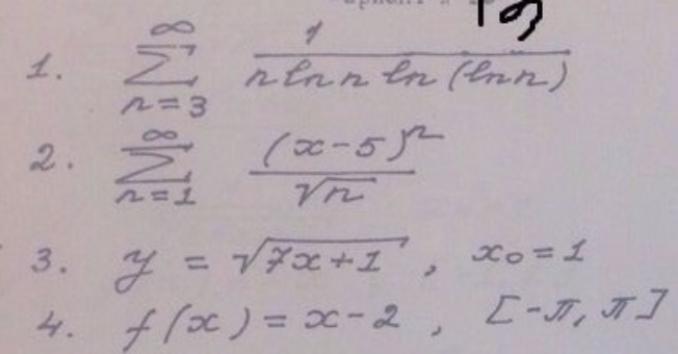 13
1. \sum_{n=3}^{\infty} \frac{1}{n \ln n \ln (\ln n)}
2. \sum_{n=1}^{\infty} \frac{(x-5)^n}{\sqrt{n}}
3. y = \sqrt{7x+1}, x_0 = 1
4. f(x) = x-2, [-π, π]